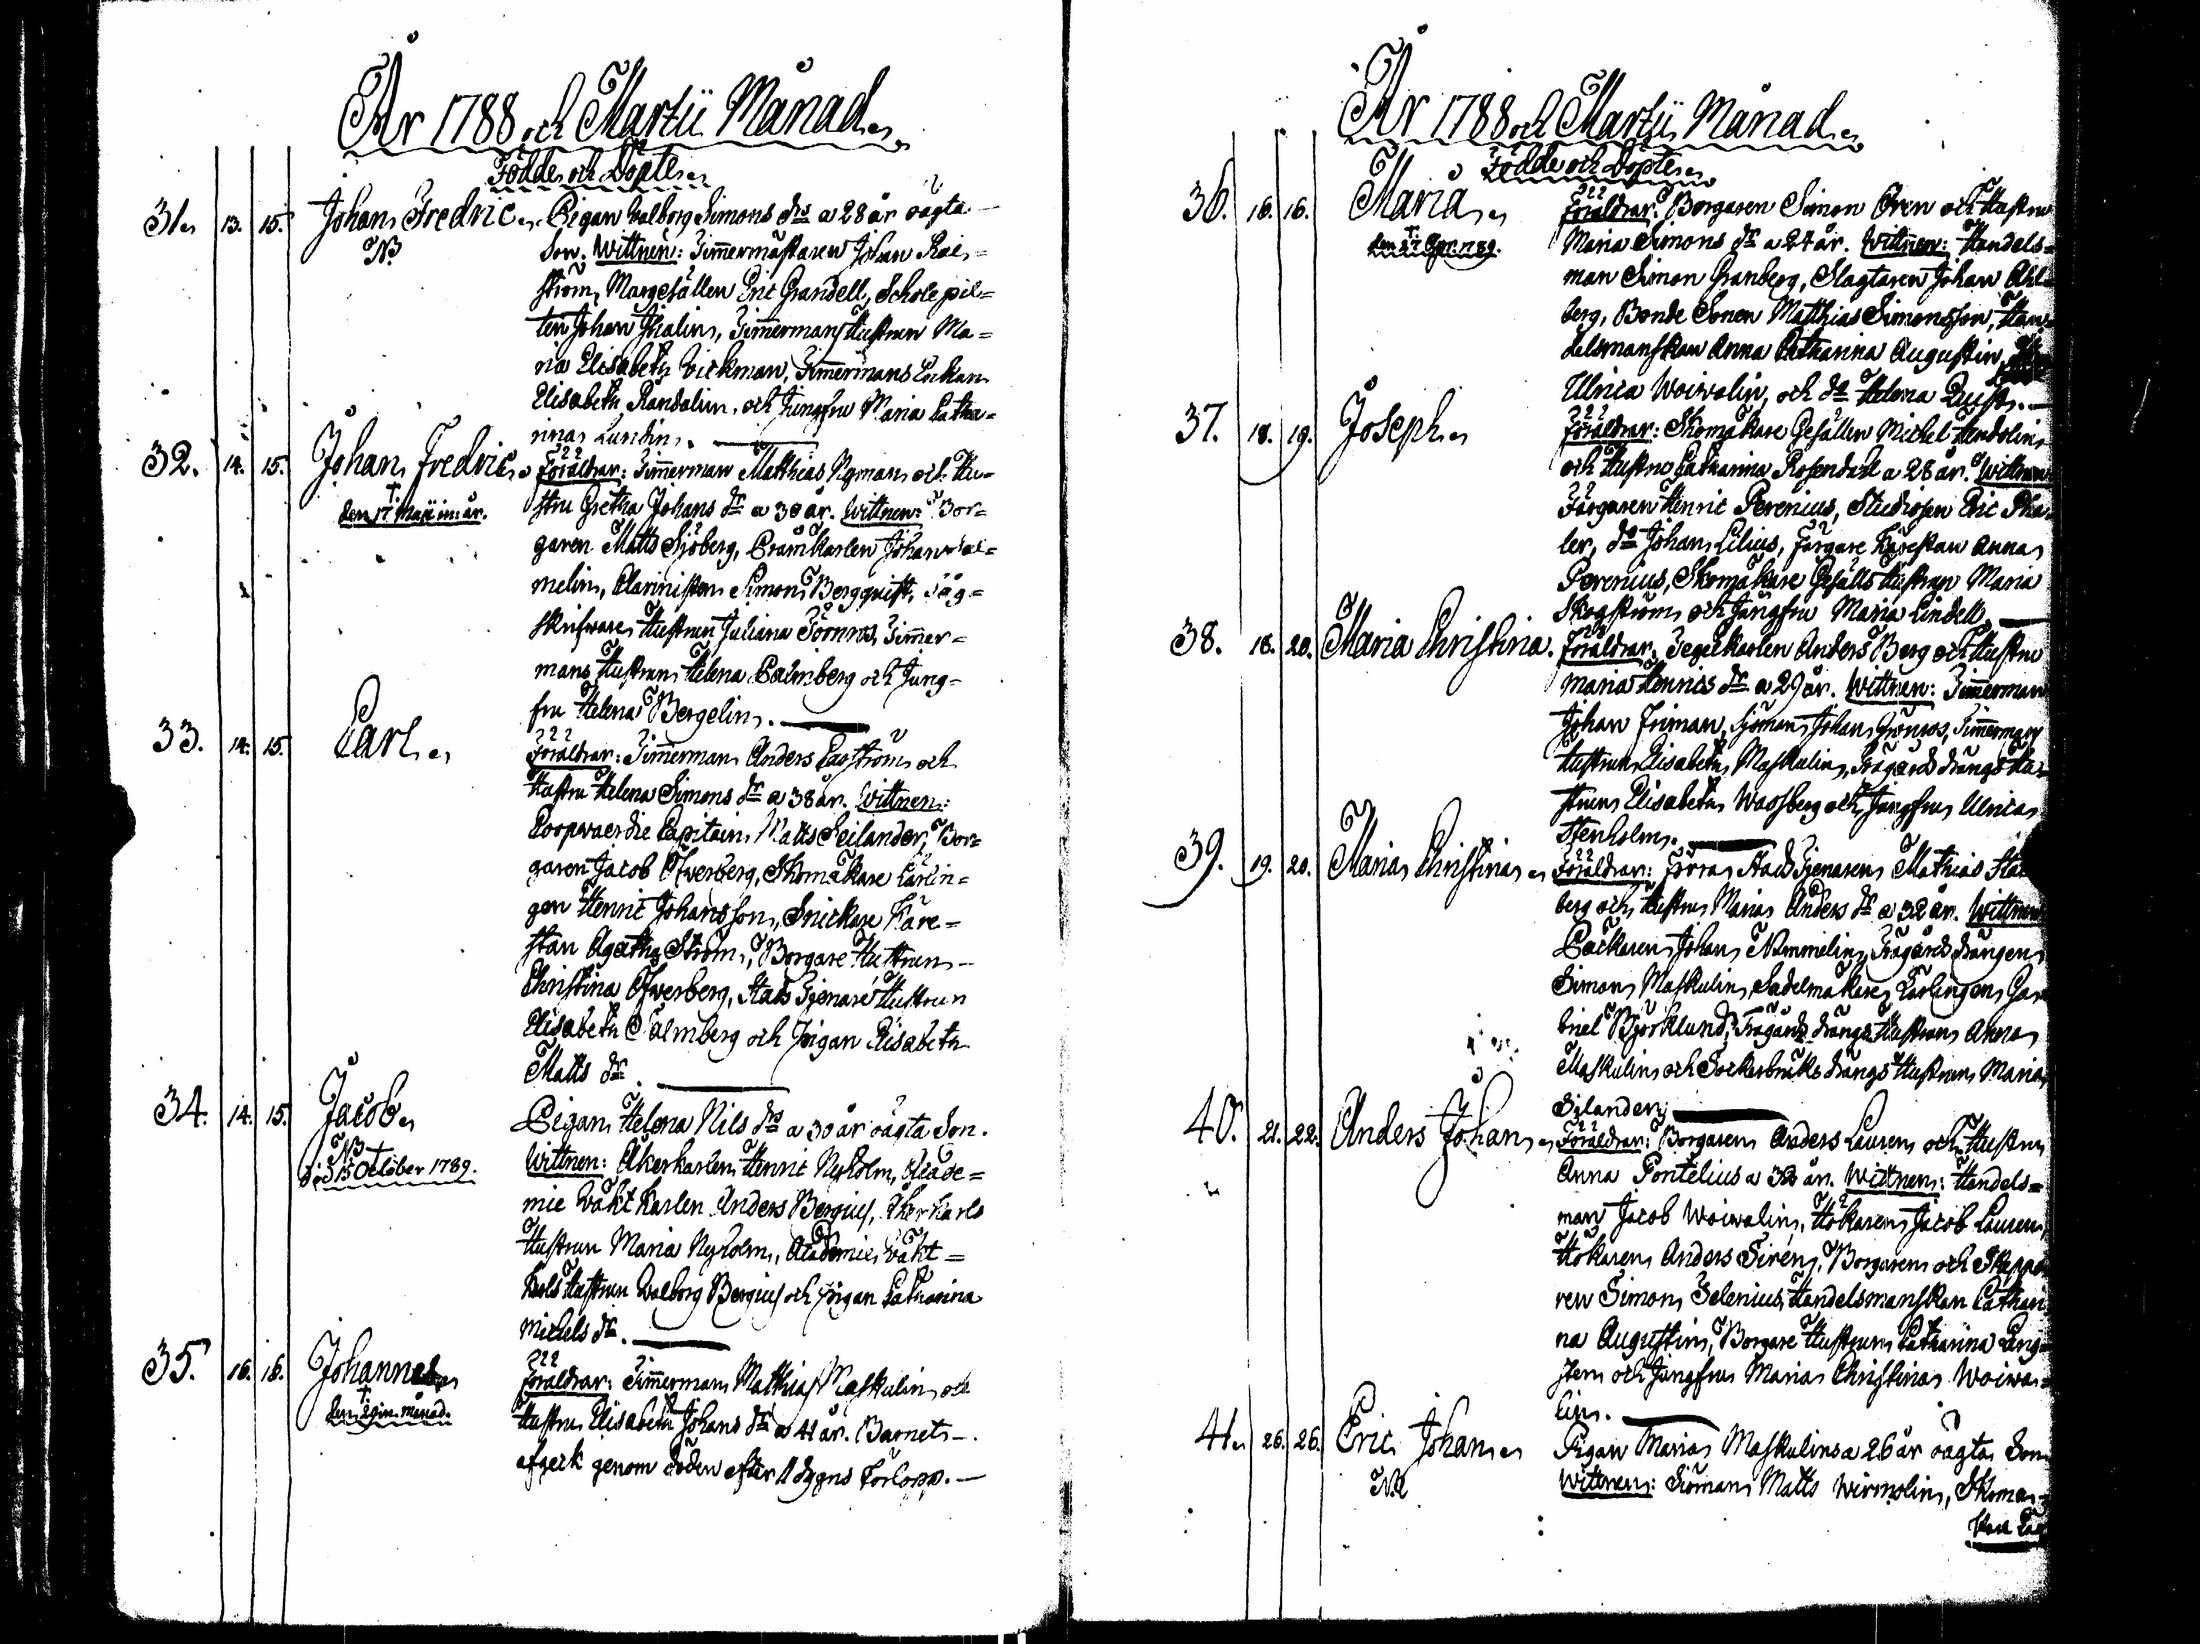 År 1788 och Martii Månad
Födde och Döpte
31. 13. 15. Johan Fredric. Pigan Walborg Simons dr a 28 år oägta
NB Son. Wittnen: Timmermästaren Johan
ström, Eric Grandell, Schole pil=
ten Johan Thalin, Timmermans Hustrun Ma=
ria Elisabeth Wickman, Timmermans Enkan
Elisabeth Randalin, och Jungfru Maria Catha=
rina Lundin.
32. 14. 15. Johan Fredric Föräldrar: Timmerman Matthias Nyman och Hu=
† den 17 Maji in: år. stru Gretha Johans dr a 30 år. Wittnen: Bor=
garen Matts Sjöberg, Johan
melin, Simon Bergquist,
skrifvare Hustrun Juliana Timmer=
mans Hustrun Helena Palmberg och Jung=
fru Helena Bergelin.
33. 14. 15. Carl Föräldrar: Timmerman Anders och
Hustru Helena Simons dr a 38 år. Wittnen:
Coopvaerdie Capitain Matts Seilander, Bor=
garen Jacob Öfverberg, Skomakare Lärlin=
gen Henric Johansson, Snickare Käre=
stan Agatha Ström, Borgare Hustrun
Christina Öfverberg, Stads Tjenare Hustrun
Elisabeth Palmberg och Pigan Elisabeth
Matts dr.
34. 14. 15. Jacob Pigan Helena Nils dr a 30 år oägta Son.
NB † Wittnen: Åkerkarlen Henric Nyholm, Acade=
död 13 October 1789. mie Wakt karlen Anders Bergius, Åkerkarls
Hustrun Maria Nyholm, Academie Wakt=
karls Hustrun Walborg Bergius och Pigan Catharina
Michels dr.
35. 16. 18. Johannes Föräldrar: Timmerman Mathias Maskulin och
† den 29 in. månad. Hustru Elisabeth Johans dr a 41 år. Barnet
afgeck genom döden efter 11 dygns Förlopp.
År 1788 och Martii Månad
Födde och Döpte
36. 16. 16. Maria Föräldrar: Borgaren Simon Oren och Hustru
† den 27 Apr. 1789. Maria Simons dr a 27 år. Wittnen: Handels=
man Simon Granberg, Slagtaren Johan Ahl=
berg, Bonde Sonen Matthias Simonsson, Han=
delsmanskan Anna Catharina Augustin,
Ulrica Woivalin, och do Helena Quist.
37. 18. 19. Joseph Föräldrar: Skomakare Gesällen Michel Hendolin
och Hustru Catharina Rosendahl a 28 år. Wittnen
Färgaren Henric Perenius, Studiosen Eric Pha=
ler, do Johan Lilius, Färgare Kärestan Anna
Perenius, Skomakare Gesälls Hustrun Maria
Skogström och Jungfru Maria Lindell.
38. 18. 20. Maria Christina. Föräldrar: Segelkarlen Anders Berg och Hustru
Maria Henrics dr a 29 år. Wittnen: Timmerman
Johan Friman, Sjöman Johan Grönros, Timmermans
Hustrun Elisabeth Maskulin, Trägårds drängs Hu=
strun Elisabeth Wassberg och Jungfru Ulrica
Stenholm.
39. 19. 20. Maria Christina Föräldrar: Förra Stads Tjenaren Mathias
berg och Hustru Maria Anders dr a 32 år. Wittnen
Packaren Johan Nummelin, Trägårds drängen
Simon Maskulin, Sadelmakare Lärlingen Ga=
briel Björklund, Trägårds drängs Hustrun Anna
Maskulin och Sockerbruks drängs Hustrun Maria
Silander.
40. 21. 22. Anders Johan Föräldrar: Borgaren Anders Lauren och Hustru
Anna Pontelius a 32 år. Wittnen: Handels=
man Jacob Woivalin, Hökaren Jacob Lauren,
Hökaren Anders Sirén, Borgaren och Skeppa
ren Simon Selenius, Handelsmanskan Cathari
na Augustin, Borgare Hustrun Catharina Ling=
sten och Jungfru Maria Christina Woiwa=
lin.
41. 26. 26. Eric Johan Pigan Maria Maskulins a 26 år oägta Son
NB Wittnen: Sjöman Matts Wirmolin, Skoma=